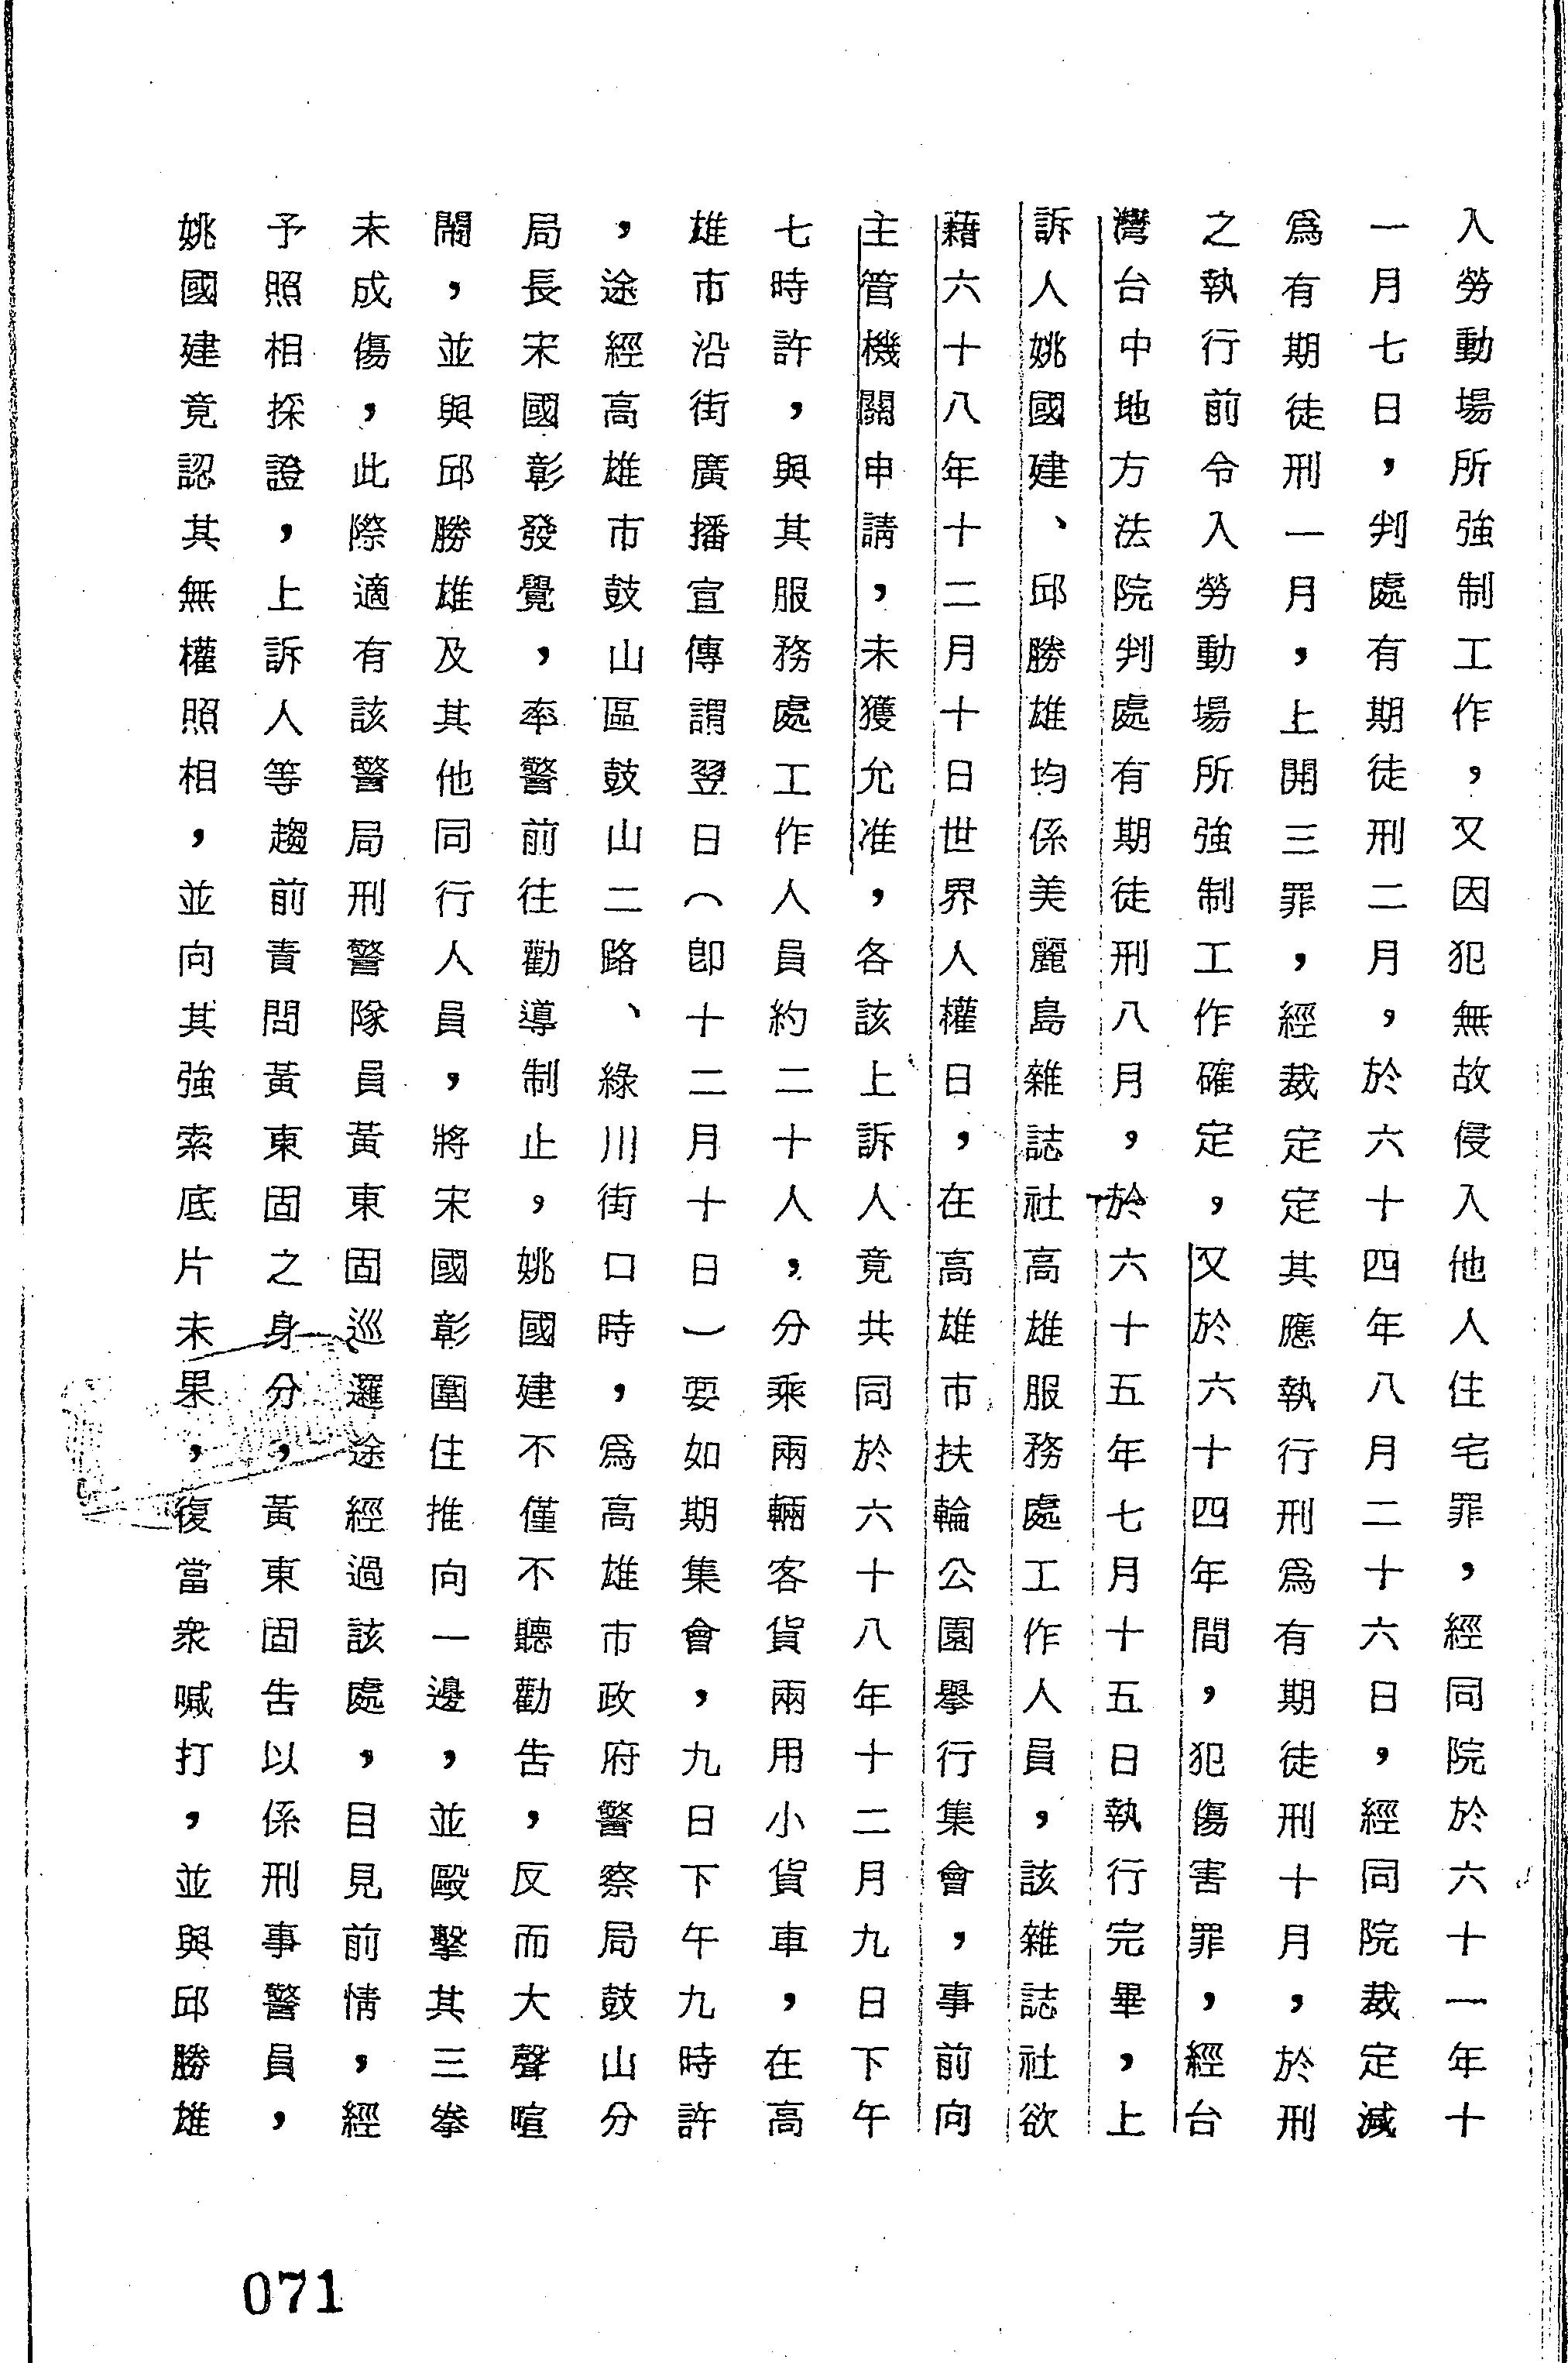 入勞動場所強制工作，又因犯無故侵入他人住宅罪，經同院於六十一年十
一月七日，判處有期徒刑二月，於六十四年八月二十六日，經同院裁定減
爲有期徒刑一月，上開三罪，經裁定定其應執行刑爲有期徒刑十月，於刑
之執行前令入勞動場所強制工作確定，又於六十四年間，犯傷害罪，經台
灣台中地方法院判處有期徒刑八月，於六十五年七月十五日執行完畢，上
訴人姚國建、邱勝雄均係美麗島雜誌社高雄服務處工作人員，該雜誌社欲
藉六十八年十二月十日世界人權日，在高雄市扶輪公園舉行集會，事前向
主管機關申請，未獲允准，各該上訴人竟共同於六十八年十二月九日下午
七時許，與其服務處工作人員約二十人，分乘兩輛客貨兩用小貨車，在高
雄市沿街廣播宣傳謂翌日（卽十二月十日）要如期集會，九日下午九時許
，途經高雄市鼓山區鼓山二路、綠川街口時，爲高雄市政府警察局鼓山分
局長宋國彰發覺，率警前往勸導制止，姚國建不僅不聽勸告，反而大聲喧
鬧，並與邱勝雄及其他同行人員，將宋國彰圍住推向一邊，並毆擊其三拳
未成傷，此際適有該警局刑警隊員黃東固巡邏途經過該處，目見前情，經
予照相採證，上訴人等趨前責問黃東固之身分，黃東固告以係刑事警員，
姚國建竟認其無權照相，並向其強索底片未果，復當衆喊打，並與邱勝雄
071